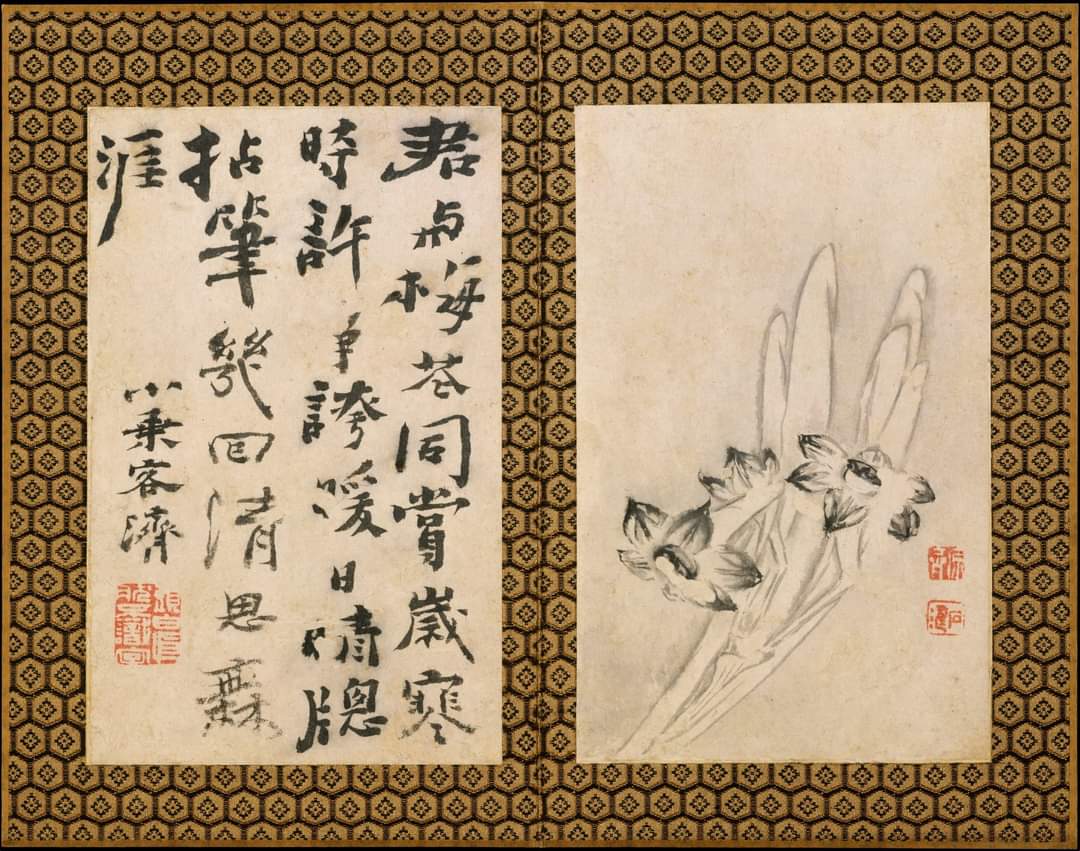 君与梅花同賞歲寒
時許爭誇暖日晴牕
拈筆幾回清思無
涯
小乘客濟
原濟
石濤